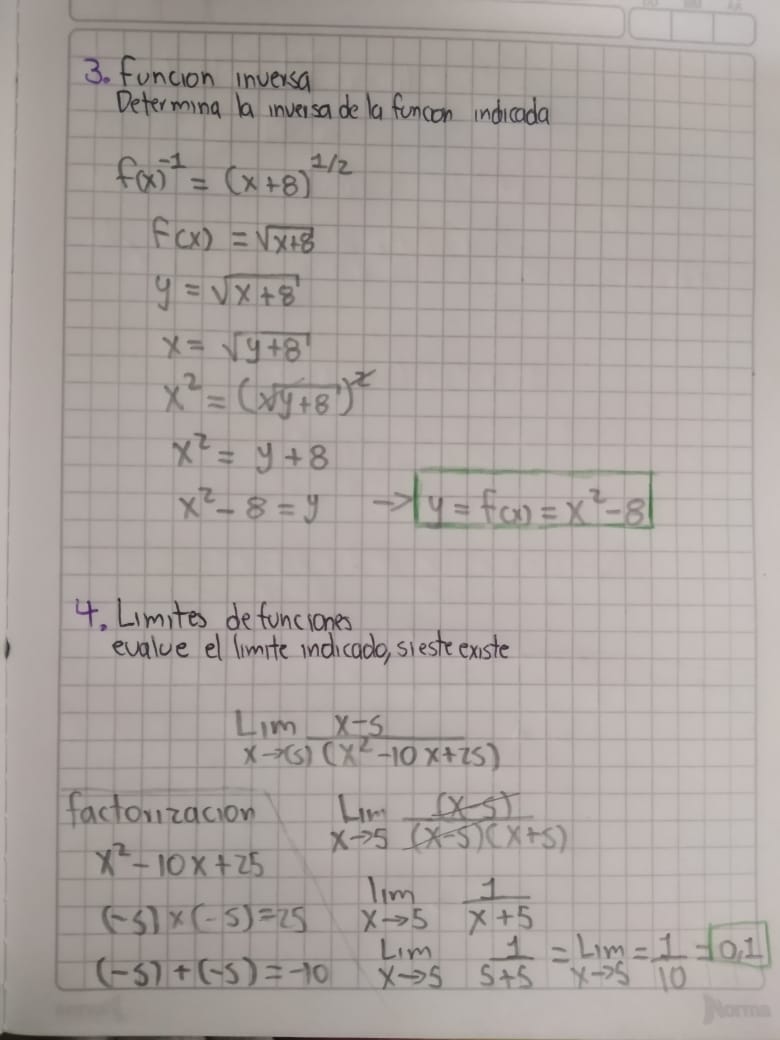 3. Funcion inversa
Determina la inversa de la funcon indicada
f(x)^-1 = (x+8)^1/2
F(x) = √x+8
y = √x+8
x = √y+8
x² = (√y+8)²
x² = y+8
x²-8 = y → y = f(x) = x²-8
4. Limites de funciones
evalue el limite indicado, si este existe
Lim x-5
x→(5) (x²-10x+25)
factorizacion
x²-10x+25
(-5)x(-5)=25
(-5)+(-5)=-10
Lim (x-5)
x→5 (x-5)(x+5)
lim 1
x→5 x+5
Lim 1 = Lim = 1 = 0,1
x→5 5+5 x→5 10
Norma